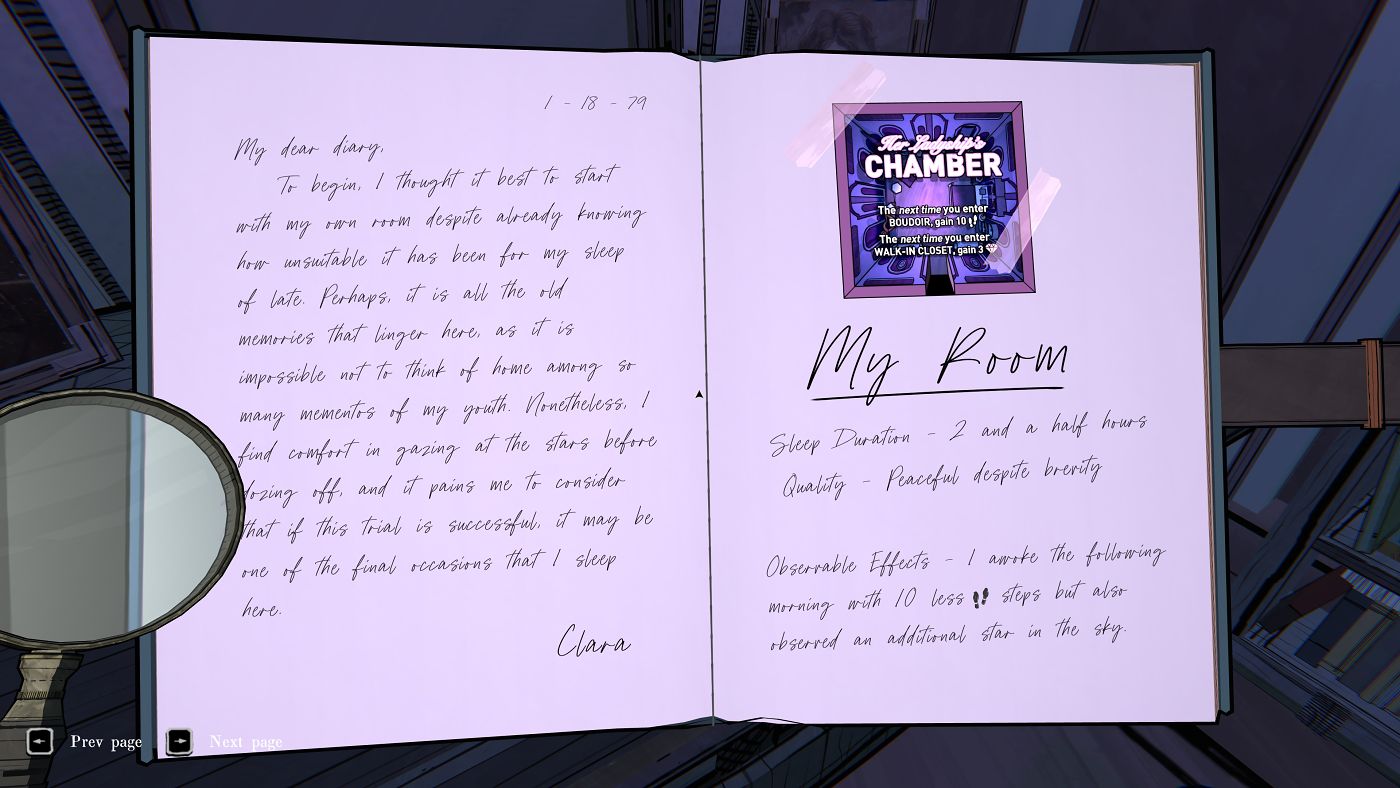 1 - 18 - 79
My dear diary,
To begin, I thought it best to start
with my own room despite already knowing
how unsuitable it has been for my sleep
of late. Perhaps, it is all the old
memories that linger here, as it is
impossible not to think of home among so
many mementos of my youth. Nonetheless, I
find comfort in gazing at the stars before
dozing off, and it pains me to consider
that if this trial is successful, it may be
one of the final occasions that I sleep
here.
Clara
Her Ladyship's
CHAMBER
The next time you enter
BOUDOIR, gain 10
The next time you enter
WALK-IN CLOSET, gain 3
My Room
Sleep Duration - 2 and a half hours
Quality - Peaceful despite brevity
Observable Effects - I awoke the following
morning with 10 less steps but also
observed an additional star in the sky.
Prev page
Next page